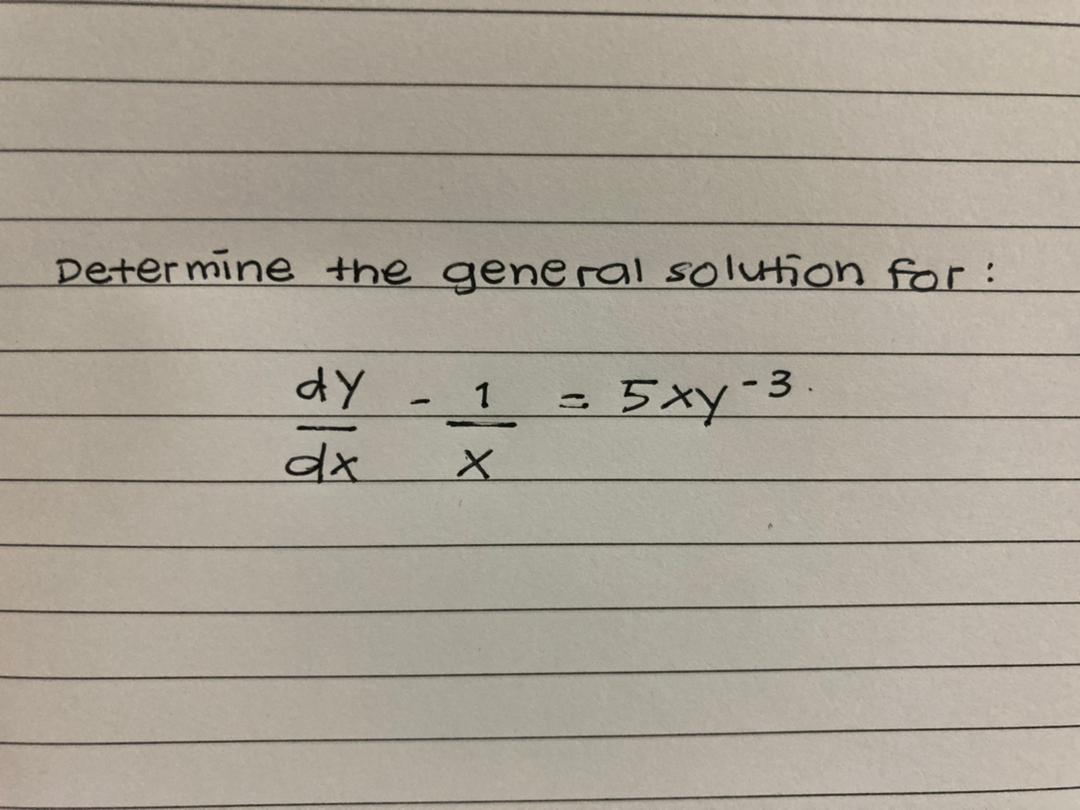 Determine the general solution for:
dy/dx - 1/x = 5xy⁻³.